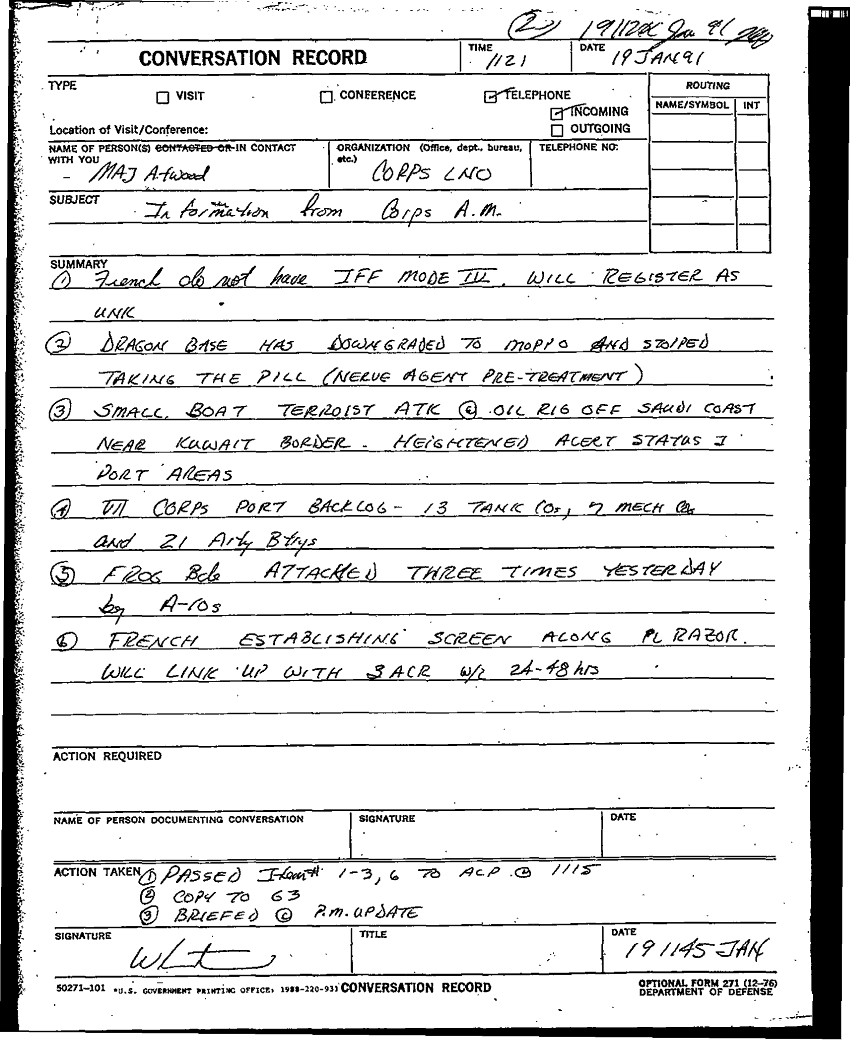 (2) 191120C Jan 91
CONVERSATION RECORD
TIME
1121
DATE
19 JAN 91
TYPE
VISIT
CONFERENCE
TELEPHONE
INCOMING
OUTGOING
ROUTING
NAME/SYMBOL INT
Location of Visit/Conference:
NAME OF PERSON(S) CONTACTED OR IN CONTACT
WITH YOU
- MAJ Atwood
ORGANIZATION (Office, dept., bureau,
etc.)
CORPS LNO
TELEPHONE NO:
SUBJECT
Information from Corps A.M.
SUMMARY
① French do not have IFF MODE III. WILL REGISTER AS
UNK
② DRAGON BASE HAS DOWNGRADED TO MOPP 0 AND STOPPED
TAKING THE PILL (NERVE AGENT PRE-TREATMENT)
③ SMALL BOAT TERROIST ATK @ OIL RIG OFF SAUDI COAST
NEAR KUWAIT BORDER - HEIGHTENED ALERT STATUS I
PORT AREAS
④ VII CORPS PORT BACKLOG - 13 TANK COs, 7 MECH Cos
and 21 Arty Btrys
⑤ FROG Bde ATTACKED THREE TIMES YESTERDAY
by A-10s
⑥ FRENCH ESTABLISHING SCREEN ALONG PL RAZOR.
WILL LINK UP WITH 3 ACR W/I 24-48 hrs
ACTION REQUIRED
NAME OF PERSON DOCUMENTING CONVERSATION
SIGNATURE
DATE
ACTION TAKEN ① PASSED Item# 1-3, 6 TO ACP @ 1115
② COPY TO G3
③ BRIEFED @ P.M. UPDATE
SIGNATURE
TITLE
DATE
191145 JAN
50271-101 *U.S. GOVERNMENT PRINTING OFFICE: 1988-220-931 CONVERSATION RECORD
OPTIONAL FORM 271 (12-76)
DEPARTMENT OF DEFENSE